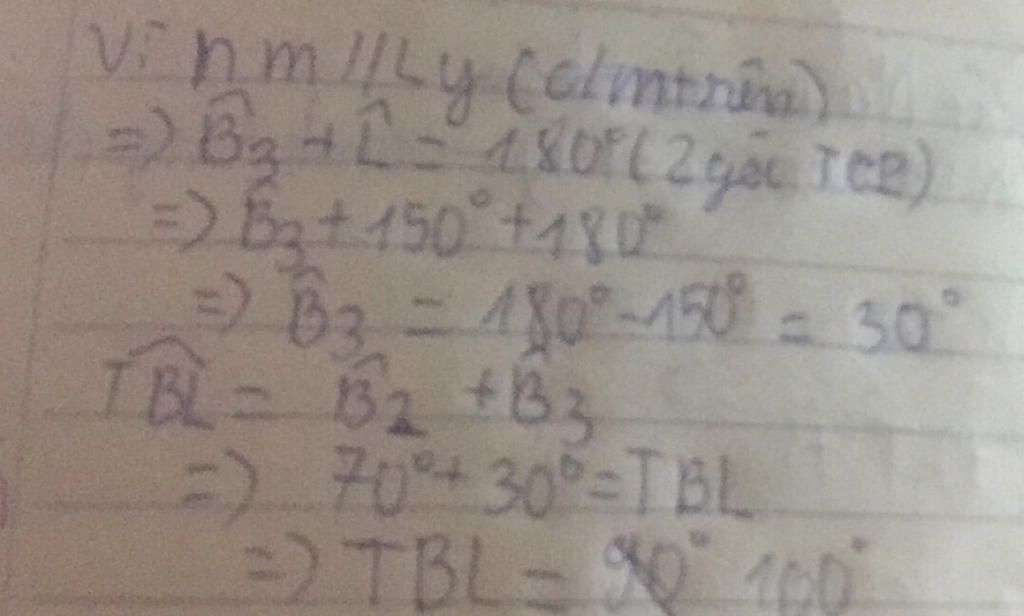 Vì nm // Ly (c/m trên)
=> B̂₃ + L̂ = 180° (2 góc TCP)
=> B̂₃ + 150° + 180°
=> B̂₃ = 180° - 150° = 30°
TBL̂ = B̂₂ + B̂₃
=> 70° + 30° = TBL
=> TBL = 100°